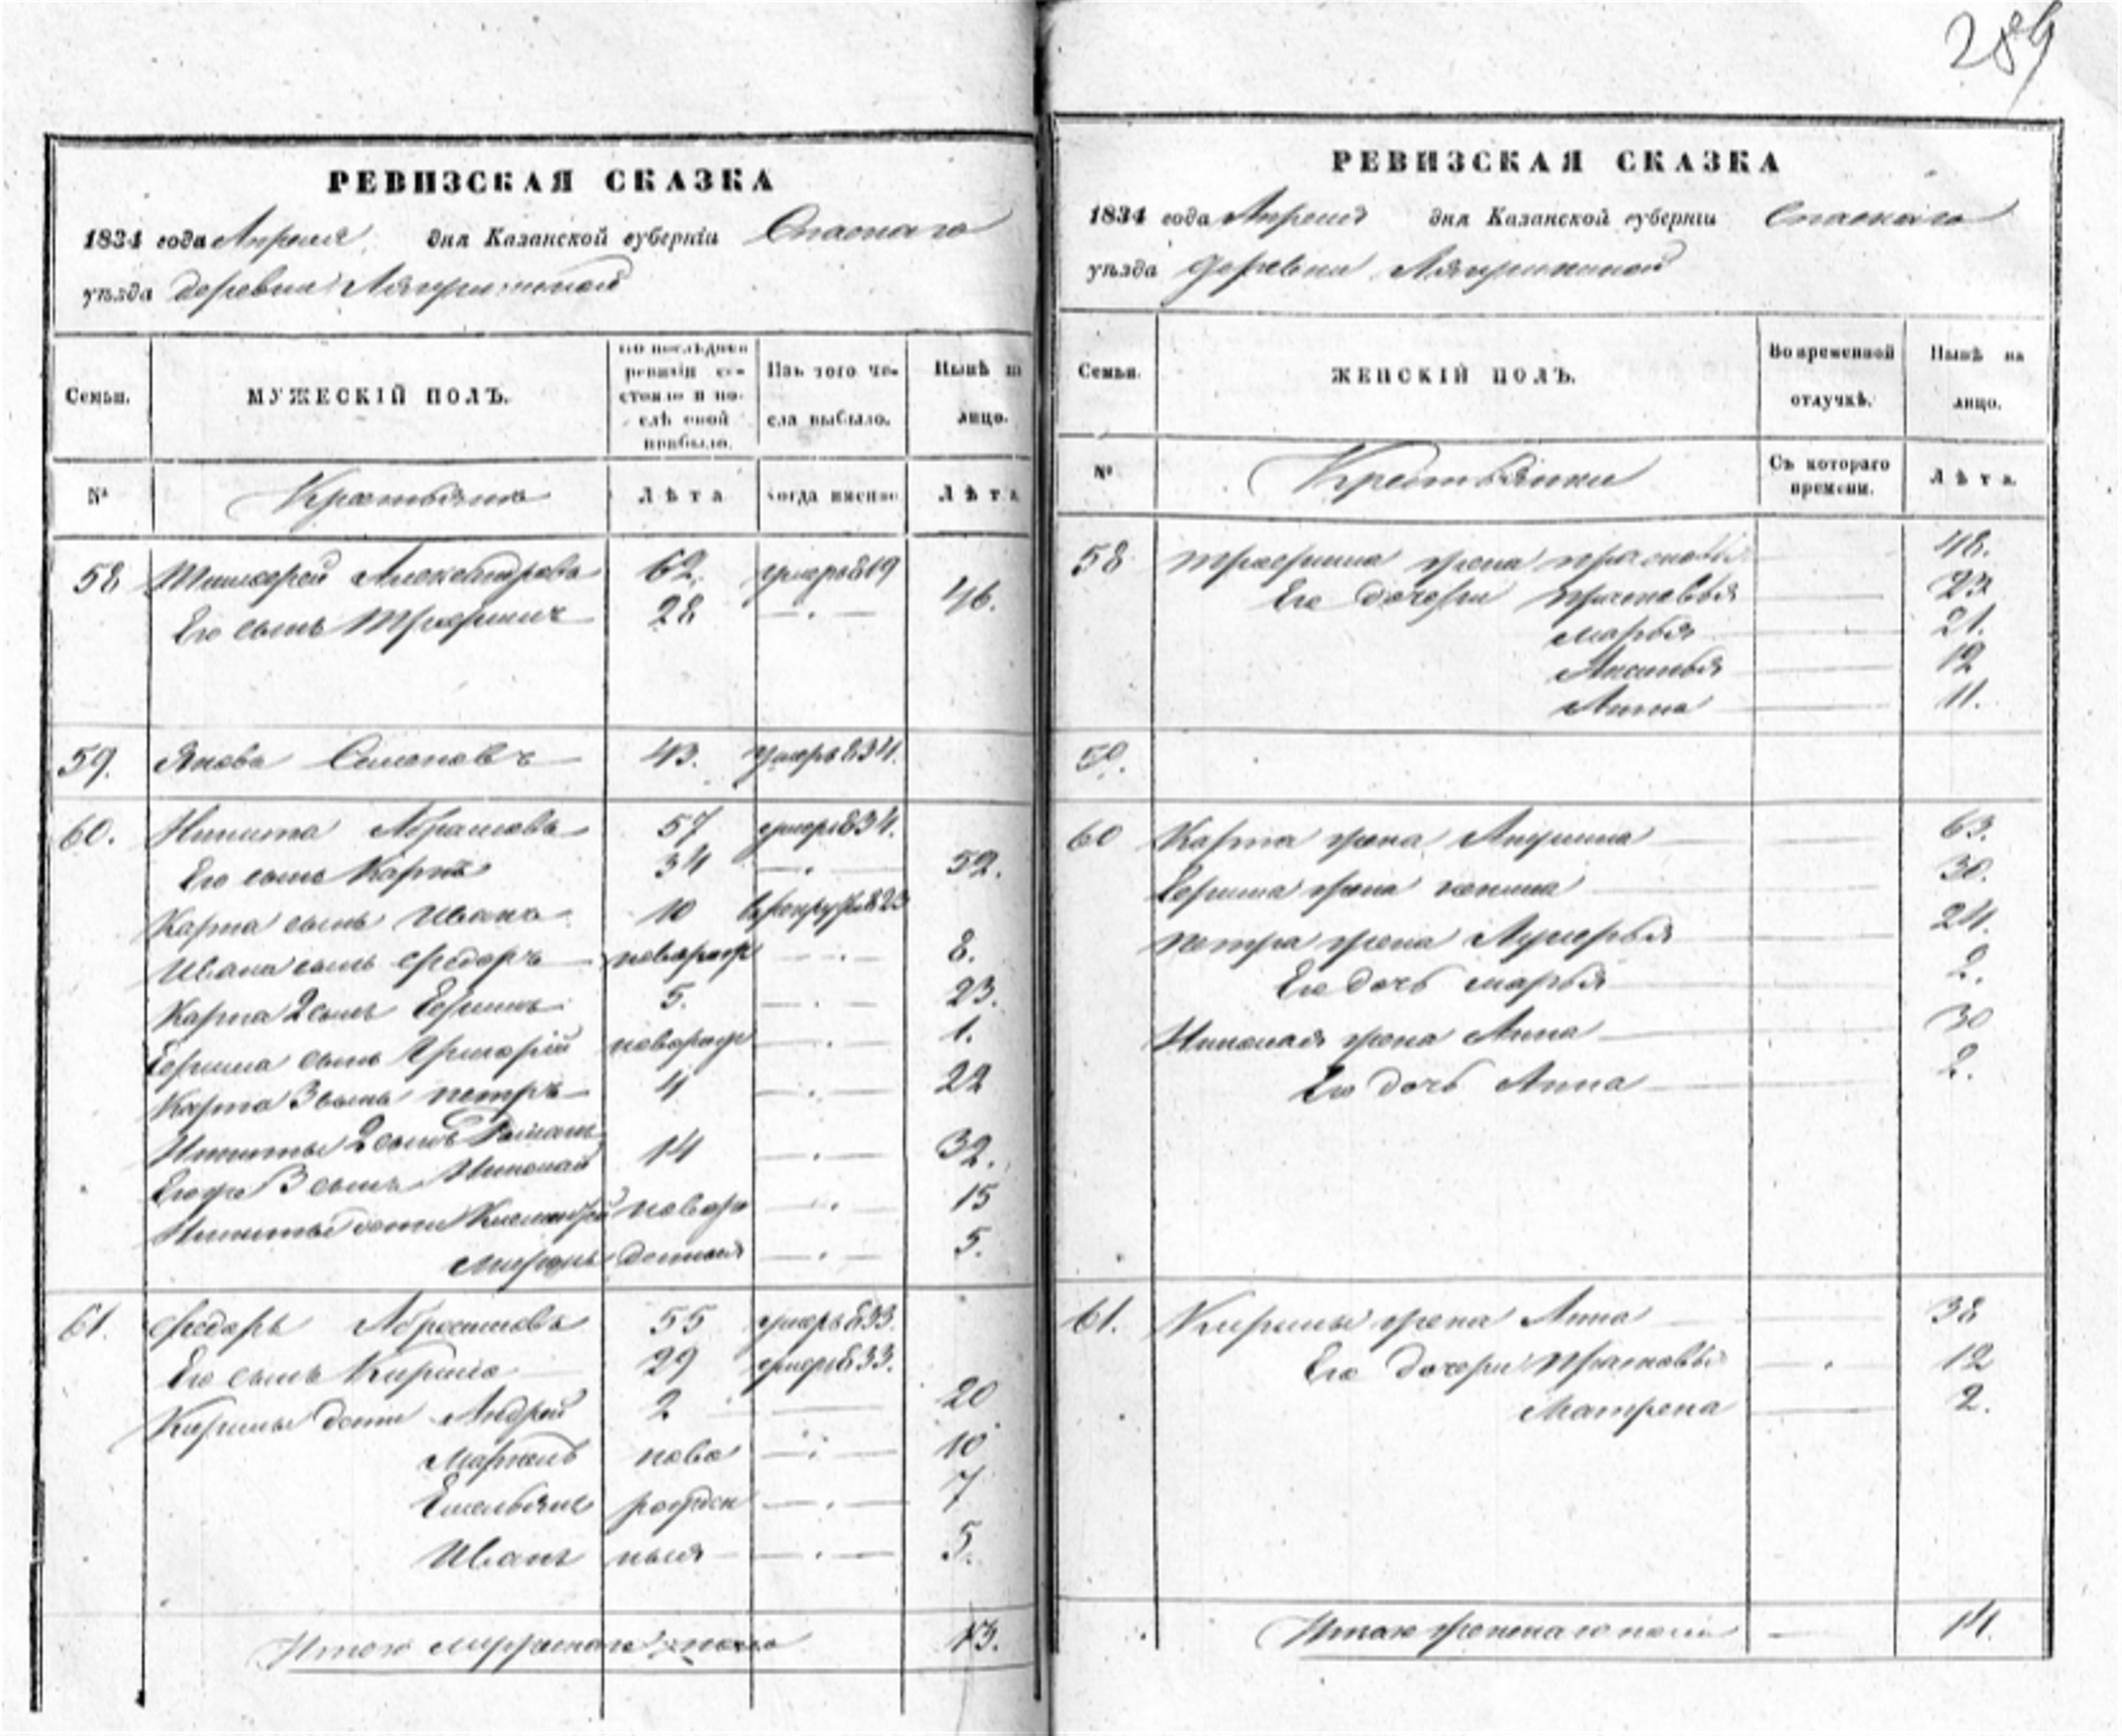 289
РЕВИЗСКАЯ СКАЗКА
1834 года Апреля дня Казанской губерніи Спаскаго
уѣзда деревни
Семьи. МУЖЕСКІЙ ПОЛЪ. По послѣдней ревизіи состояло и послѣ оной прибыло. Изъ того числа выбыло. Нынѣ на лицо.
№ Крестьяне Лѣта Когда имянно Лѣта
58 Александровъ 62 умеръ 819
Его сынъ Трофимъ 28 46.
59. Яковъ Семеновъ 43. умеръ 834.
60. Никита Абрамовъ 57 умеръ 834.
Его сынъ Карпъ 34 52.
Карпа сынъ Иванъ 10
Ивана сынъ Федоръ новорож 8.
Карпа 2 сынъ Ефимъ 5. 23.
Ефима сынъ Григорій новорож 1.
Карпа 3 сынъ петръ 4 22
Никиты 2 сынъ Романъ
Его же 3 сынъ Николай 14 32.
Никиты дети новоро 15
Миронъ 5.
61. Федоръ Абросимовъ 55 умеръ 833.
Его сынъ Кирила 29 умеръ 833.
Кирилы дети Андрей 2 20
Маркелъ ново 10
Емельянъ рожден 7
Иванъ ныя 5.
Итого мужеска пола 13.
РЕВИЗСКАЯ СКАЗКА
1834 года Апреля дня Казанской губерніи Спаскаго
уѣзда деревни
Семьи. ЖЕНСКІЙ ПОЛЪ. Во временной отлучкѣ. Нынѣ на лицо.
№ Крестьянки Съ котораго времени. Лѣта.
58 Трофима жена 48.
Его дочери Прасковья 23
Марья 21.
Аксинья 12
Анна 11.
59.
60 Карпа жена Акулина 63.
Ефима жена 30.
петра жена Лукерья 24.
Его дочь марья 2.
Николая жена Анна 30
Его дочь Анна 2.
61. Кирилы жена Анна 38
Его дочери Прасковья 12
Матрена 2.
Итого женскаго пола 14.